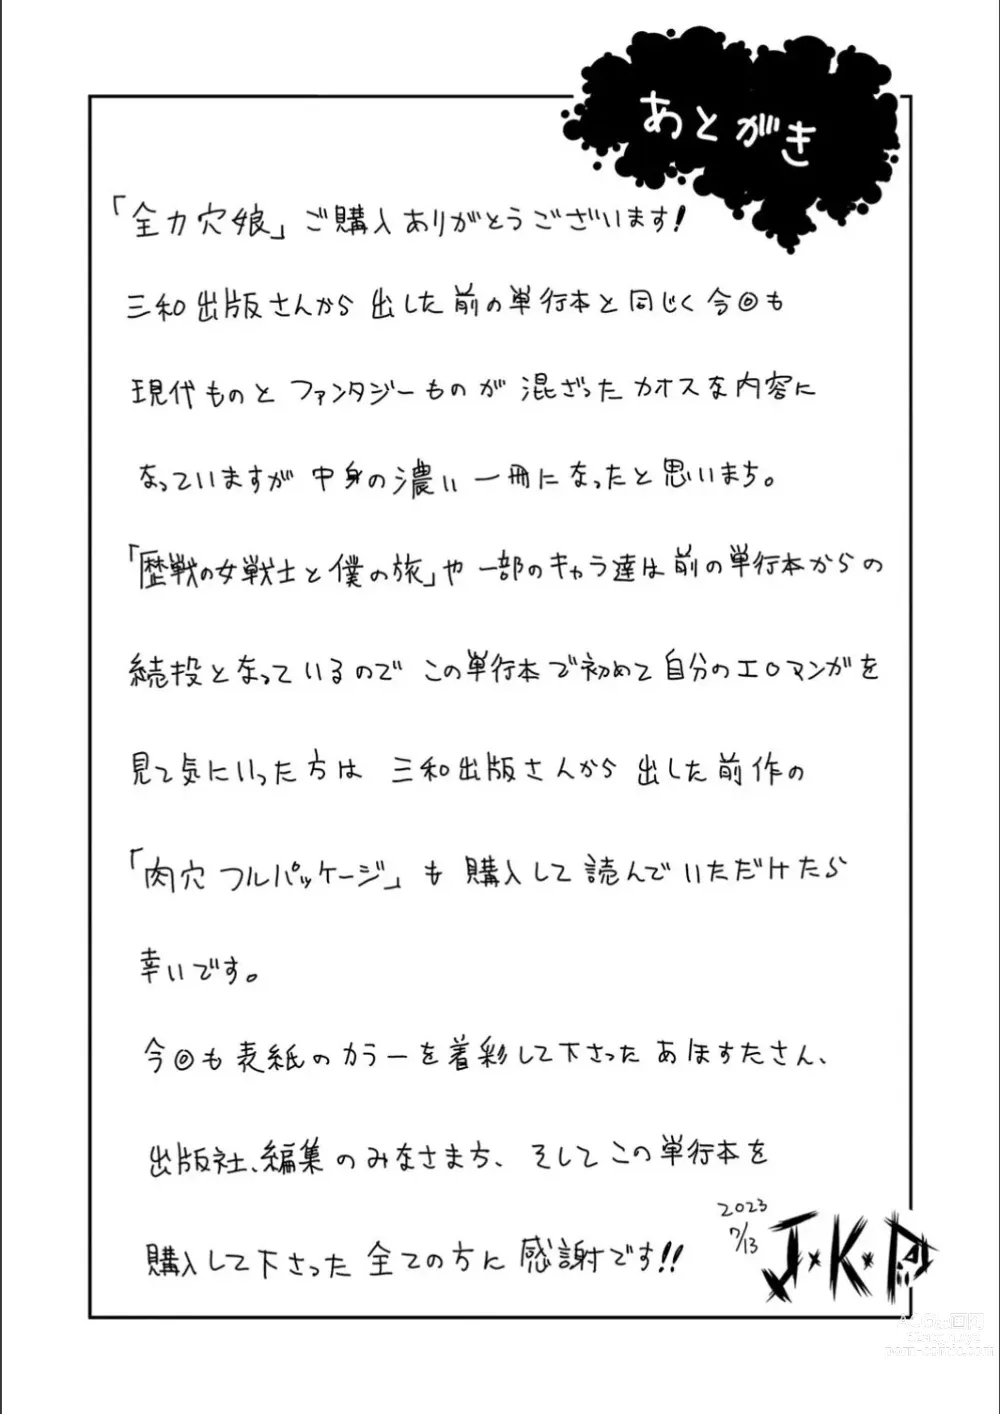 あとがき
「全力穴娘」ご購入ありがとうございます!
三和出版さんから出した前の単行本と同じく今回も
現代ものとファンタジーものが混ざったカオスな内容に
なっていますが中身の濃い一冊になったと思いまち。
「歴戦の女戦士と僕の旅」や一部のキャラ達は前の単行本からの
続投となっているのでこの単行本で初めて自分のエロマンガを
見て気にいった方は三和出版さんから出した前作の
「肉穴フルパッケージ」も購入して読んでいただけたら
幸いです。
今回も表紙のカラーを着彩して下さったあほすたさん、
出版社、編集のみなさまち、そしてこの単行本を
購入して下さった全ての方に感謝です!!
2023
7/13
J・K・P